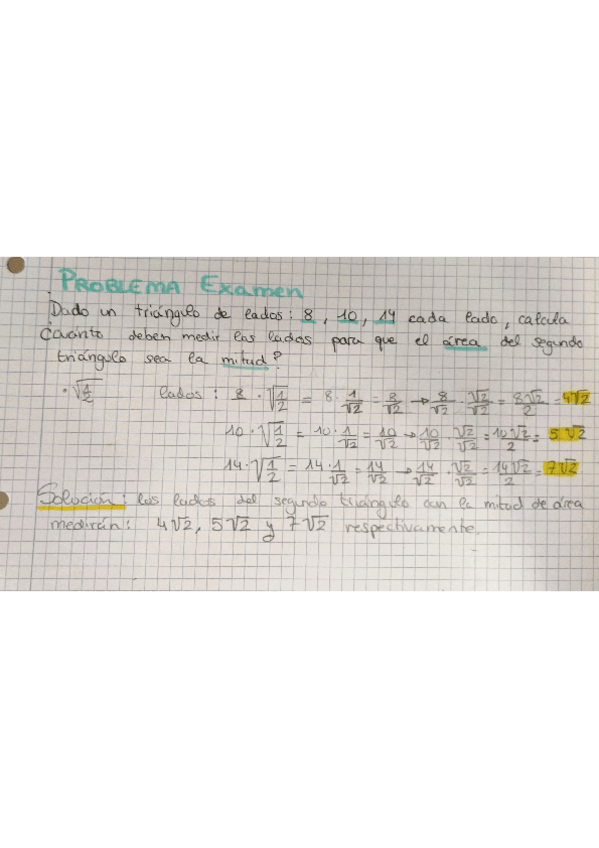 PROBLEMA Examen
Dado un triángulo de lados: 8, 10, 14 cada lado, calcula
¿cuánto deben medir los lados para que el área del segundo
triángulo sea la mitud?
· √½ lados: 8 · √(1/2) = 8 · 1/√2 = 8/√2 → 8/√2 · √2/√2 = 8√2/2 = 4√2
10 · √(1/2) = 10 · 1/√2 = 10/√2 → 10/√2 · √2/√2 = 10√2/2 = 5√2
14 · √(1/2) = 14 · 1/√2 = 14/√2 → 14/√2 · √2/√2 = 14√2/2 = 7√2
Solución: los lados del segundo triángulo con la mitad de área
medirán: 4√2, 5√2 y 7√2 respectivamente.